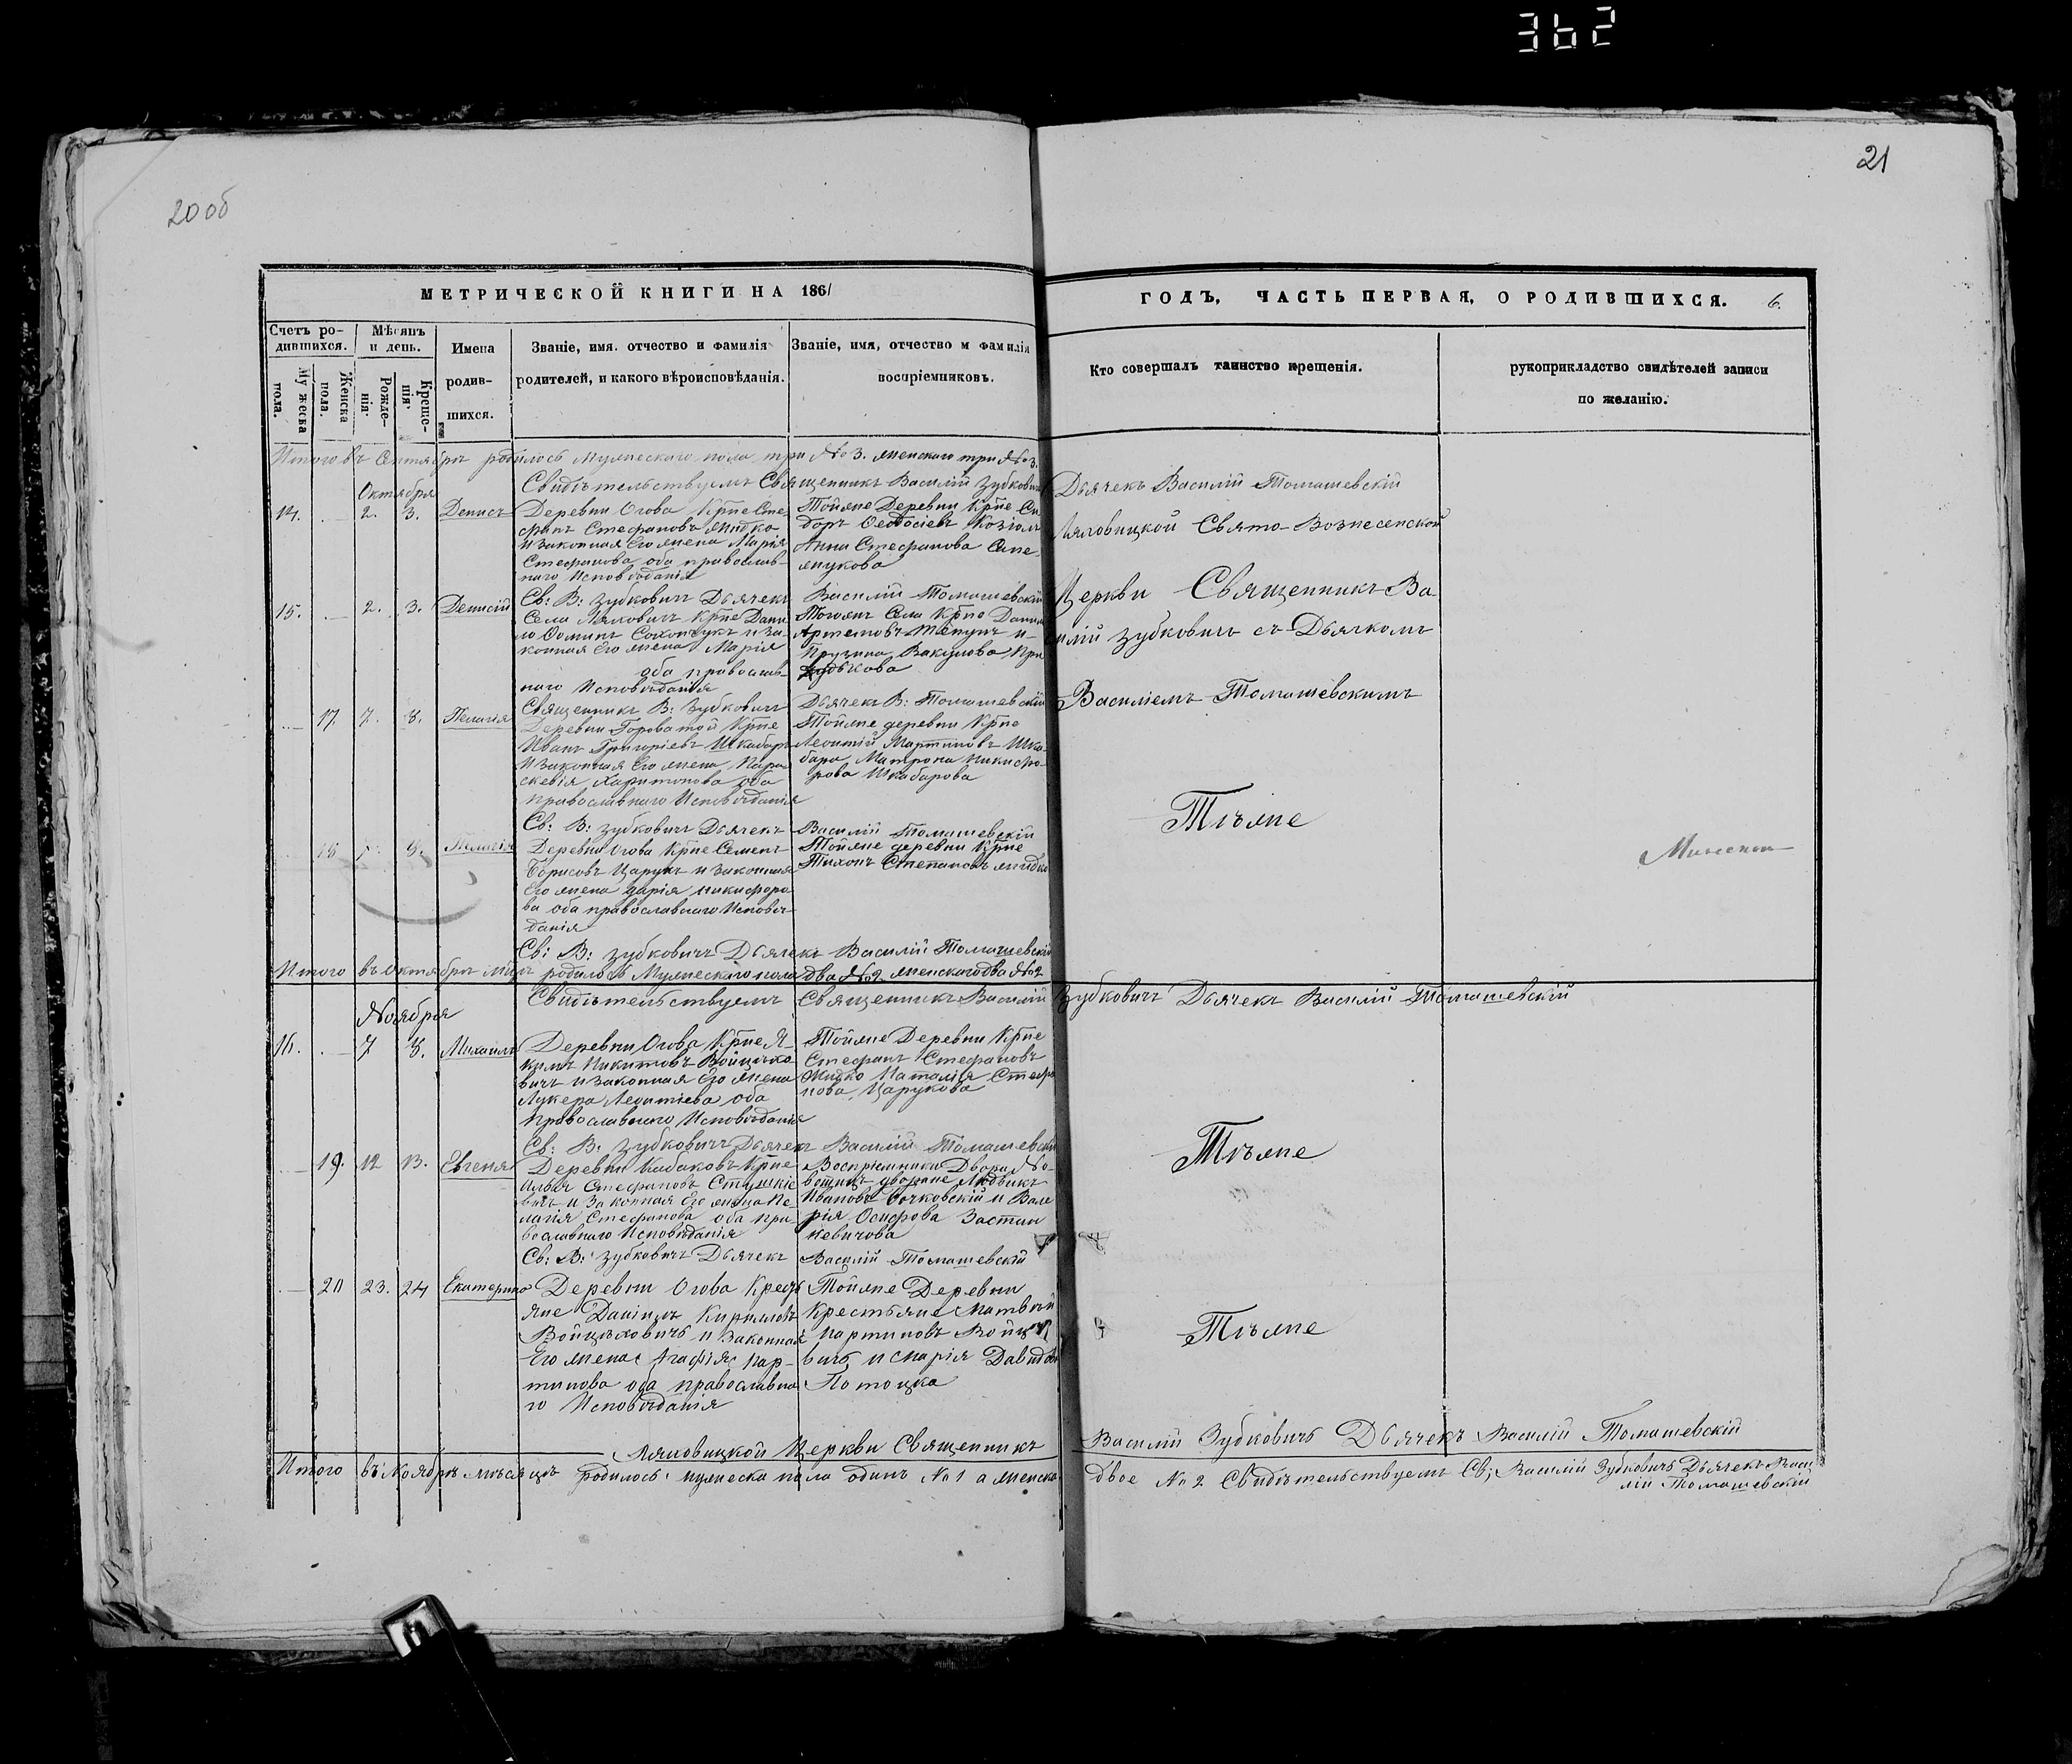 362
20 об
21
МЕТРИЧЕСКОЙ КНИГИ НА 1861
ГОДЪ, ЧАСТЬ ПЕРВАЯ, О РОДИВШИХСЯ. 6.
Счетъ ро-
дившихся.
Мужеска
пола.
Женска
пола.
Мѣсяцъ
и день.
Рожде-
нія.
Креще-
нія.
Имена
родив-
шихся.
Званіе, имя, отчество и фамилія
родителей, и какого вѣроисповѣданія.
Званіе, имя, отчество и фамилія
воспріемниковъ.
Кто совершалъ таинство крещенія.
рукоприкладство свидѣтелей записи
по желанію.
Итого въ Сентябрѣ родилось Мужескаго пола три №3. женскаго три №3.
Свидѣтельствуемъ Священникъ Василій Зубковичъ Дьячекъ Василій Томашевскій
Октября
14. 2. 3. Денисъ
Деревни Огова Крне Сте-
фанъ Стефановъ Жидко
и законная Его жена Марія
Стефанова оба православ-
наго Исповѣданія
Тойже Деревни Крне Си
доръ Ѳеодосіевъ Козіолъ
Анна Стефанова
Ляховицкой Свято-Вознесенской
Церкви Священникъ Ва
силій Зубковичъ съ Дьячкомъ
Василіемъ Томашевскимъ
Св: В: Зубковичъ Дьячекъ Василій Томашевскій
15. 2. 3. Денисій
Села Ляховичъ Крне Дани
ло Ѳоминъ и за-
конная Его жена Марія
оба православ-
наго Исповѣданія
Тогожъ Села Крне Данило
Артемовъ и
Вакулова
Священникъ В: Зубковичъ Дьячекъ В: Томашевскій
17. 7. 8. Пелагія
Деревни Гороватой Крне
Иванъ Григоріевъ Шкабаръ
и законная Его жена Пара
скевія Харитонова оба
православнаго Исповѣданія
Тойже деревни Крне
Леонтій Мартиновъ Шка-
бара, Матрона Никифо-
рова Шкабарова
Тѣже
Св: В: Зубковичъ Дьячекъ Василій Томашевскій
18 7. 8. Пелагія
Деревни Огова Крне Семенъ
Борисовъ Царукъ и законная
Его жена Дарія Никифоро-
ва оба православнаго Исповѣ-
данія
Тойже деревни Крне
Тихонъ Степановъ Жидко
Св: В: Зубковичъ Дьячекъ Василій Томашевскій
Итого въ Октябрѣ мѣц родилось Мужескаго пола два №2. женскаго два №2
Свидѣтельствуемъ Священникъ Василій Зубковичъ Дьячекъ Василій Томашевскій
Ноября
16. 7 8. Михаилъ
Деревни Огова Крне Я-
кимъ Никитовъ Войцехо
вичъ и законная Его жена
Лукера Леонтіева оба
православнаго Исповѣданія
Тойже Деревни Крне
Стефанъ Стефановъ
Жидко Наталія Стефа
нова Царукова
Тѣже
Св: В: Зубковичъ Дьячекъ Василій Томашевскій
19. 12 13. Евгенія
Деревни Кабаковъ Крне
Илья Стефановъ
и Законная Его жена Пе-
лагія Стефанова оба пра-
вославнаго Исповѣданія
Воспріемники Двора
дворяне Людвикъ
Ивановъ и Вале
рія Осифова Застин
кевичова
Св: В: Зубковичъ Дьячекъ Василій Томашевскій
20 23. 24 Екатерина
Деревни Огова Кресть
яне Даніилъ Кириловъ
Войцѣховичъ и Законная
Его жена Агафія Мар-
тинова оба православна
го Исповѣданія
Тойже Деревни
Крестьяне Матвѣй
Мартиновъ
вичъ и Марія Давидова
Потоцка
Тѣже
Ляховицкой Церкви Священникъ Василій Зубковичъ Дьячекъ Василій Томашевскій
Итого въ Ноябрѣ мѣсяцѣ родилось мужеска пола одинъ №1 а женска двое №2 Свидѣтельствуемъ Св; Василій Зубковичъ Дьячекъ Васи
лій Томашевскій